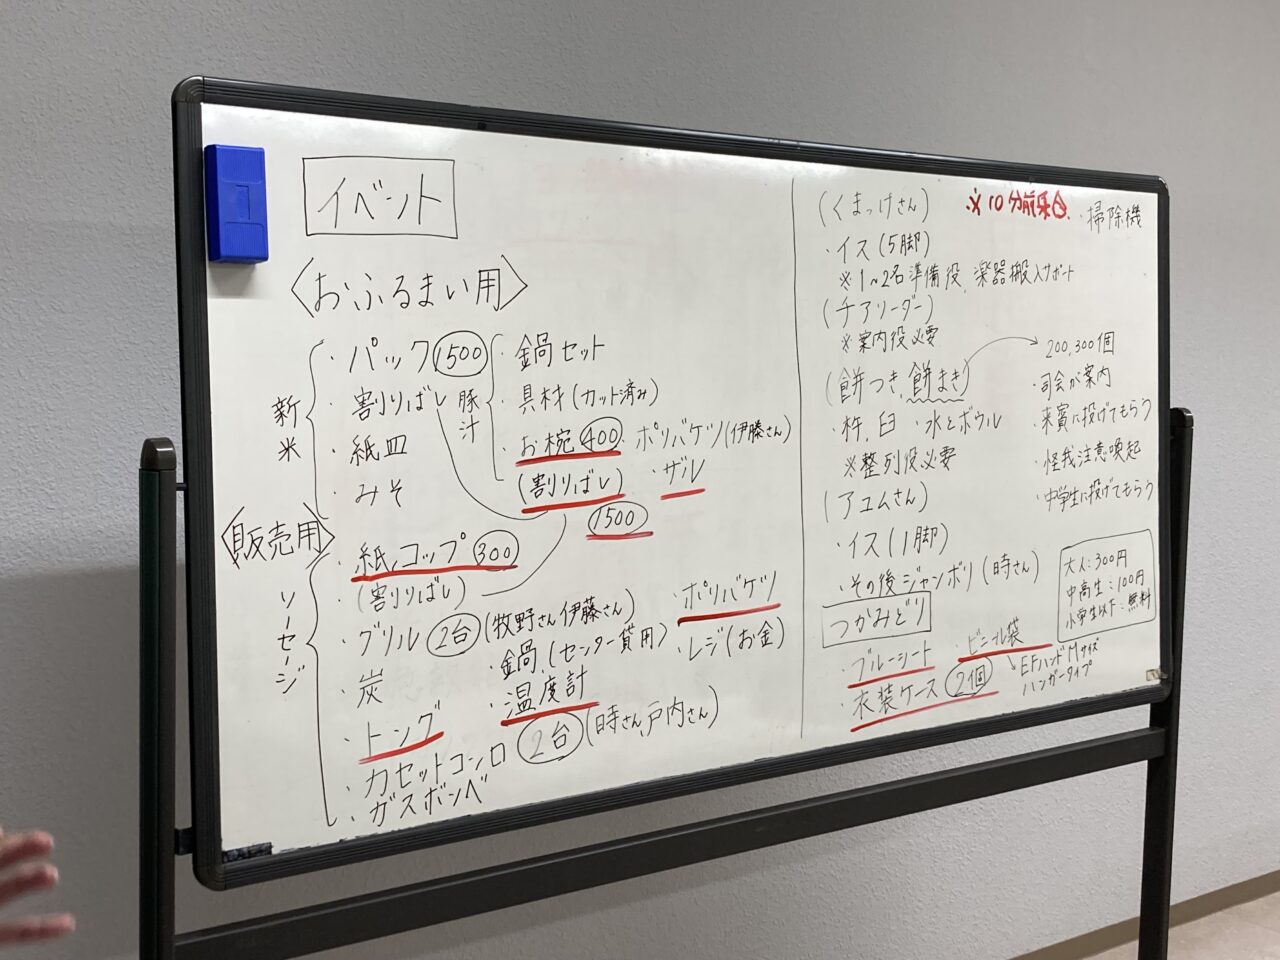 イベント
〈おふるまい用〉
新米
・パック 1500
・割りばし
・紙皿
・みそ
豚汁
・鍋セット
・具材(カット済み)
・お椀 400 ・ポリバケツ(伊藤さん)
(割りばし) ・ザル
1500
〈販売用〉
ソーセージ
・紙コップ 300
・(割りばし)
・グリル 2台 (牧野さん伊藤さん) ・ポリバケツ
・炭 ・鍋(センター貸用) ・レジ(お金)
・トング ・温度計
・カセットコンロ 2台 (時さん,戸内さん)
・ガスボンベ
(くまっけさん) ※10分前集合 ・掃除機
・イス(5脚)
※1~2名準備役、楽器搬入サポート
(チアリーダー)
※案内役必要
(餅つき,餅まき) 200,300個
・杵,臼 ・水とボウル
※整列役必要
・司会が案内
・来賓に投げてもらう
・怪我注意喚起
・中学生に投げてもらう
(アユムさん)
・イス(1脚)
・その後ジャンボリ(時さん)
大人:300円
中高生:100円
小学生以下:無料
つかみどり
・ブルーシート ・ビニール袋
EFハンドMサイズ
ハンガータイプ
・衣装ケース 2個